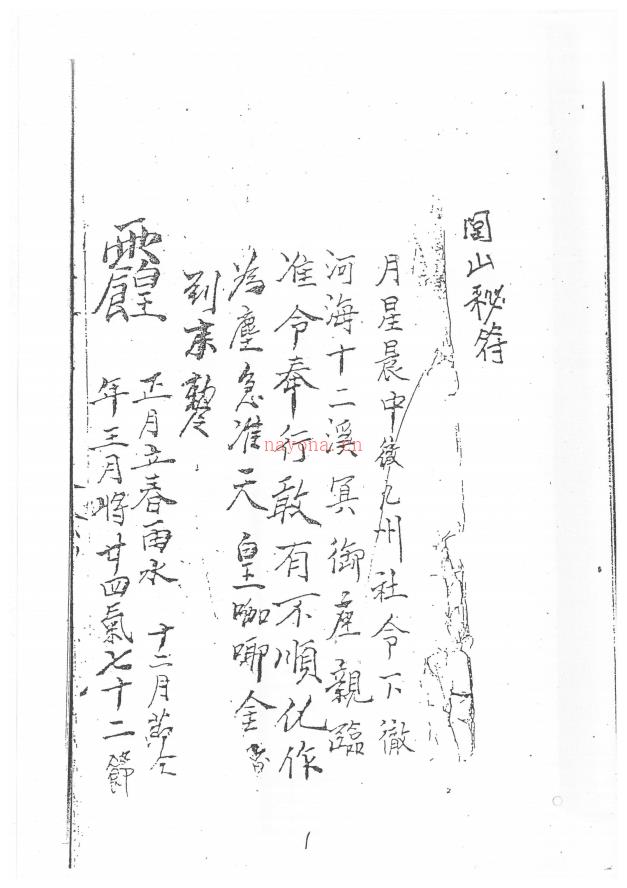 閭山秘符
月星晨中後九州社令下徹
河海十二溪冥御座親臨
准令奉行敢有不順化作
為塵急准天皇咖唧全
到奉勅令
正月立春雨水 十二月節令
年三月將廿四氣七十二節
nayona.cn
1